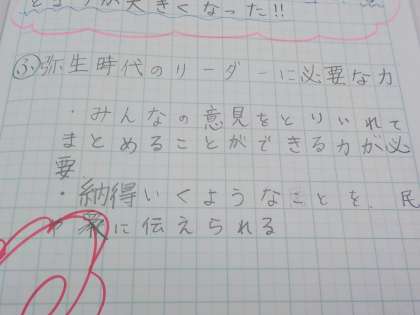 こまりが大きくなった!!
③弥生時代のリーダーに必要な力
・みんなの意見をとりいれて
まとめることができる力が必
要
・納得いくようなことを、民
に伝えられる